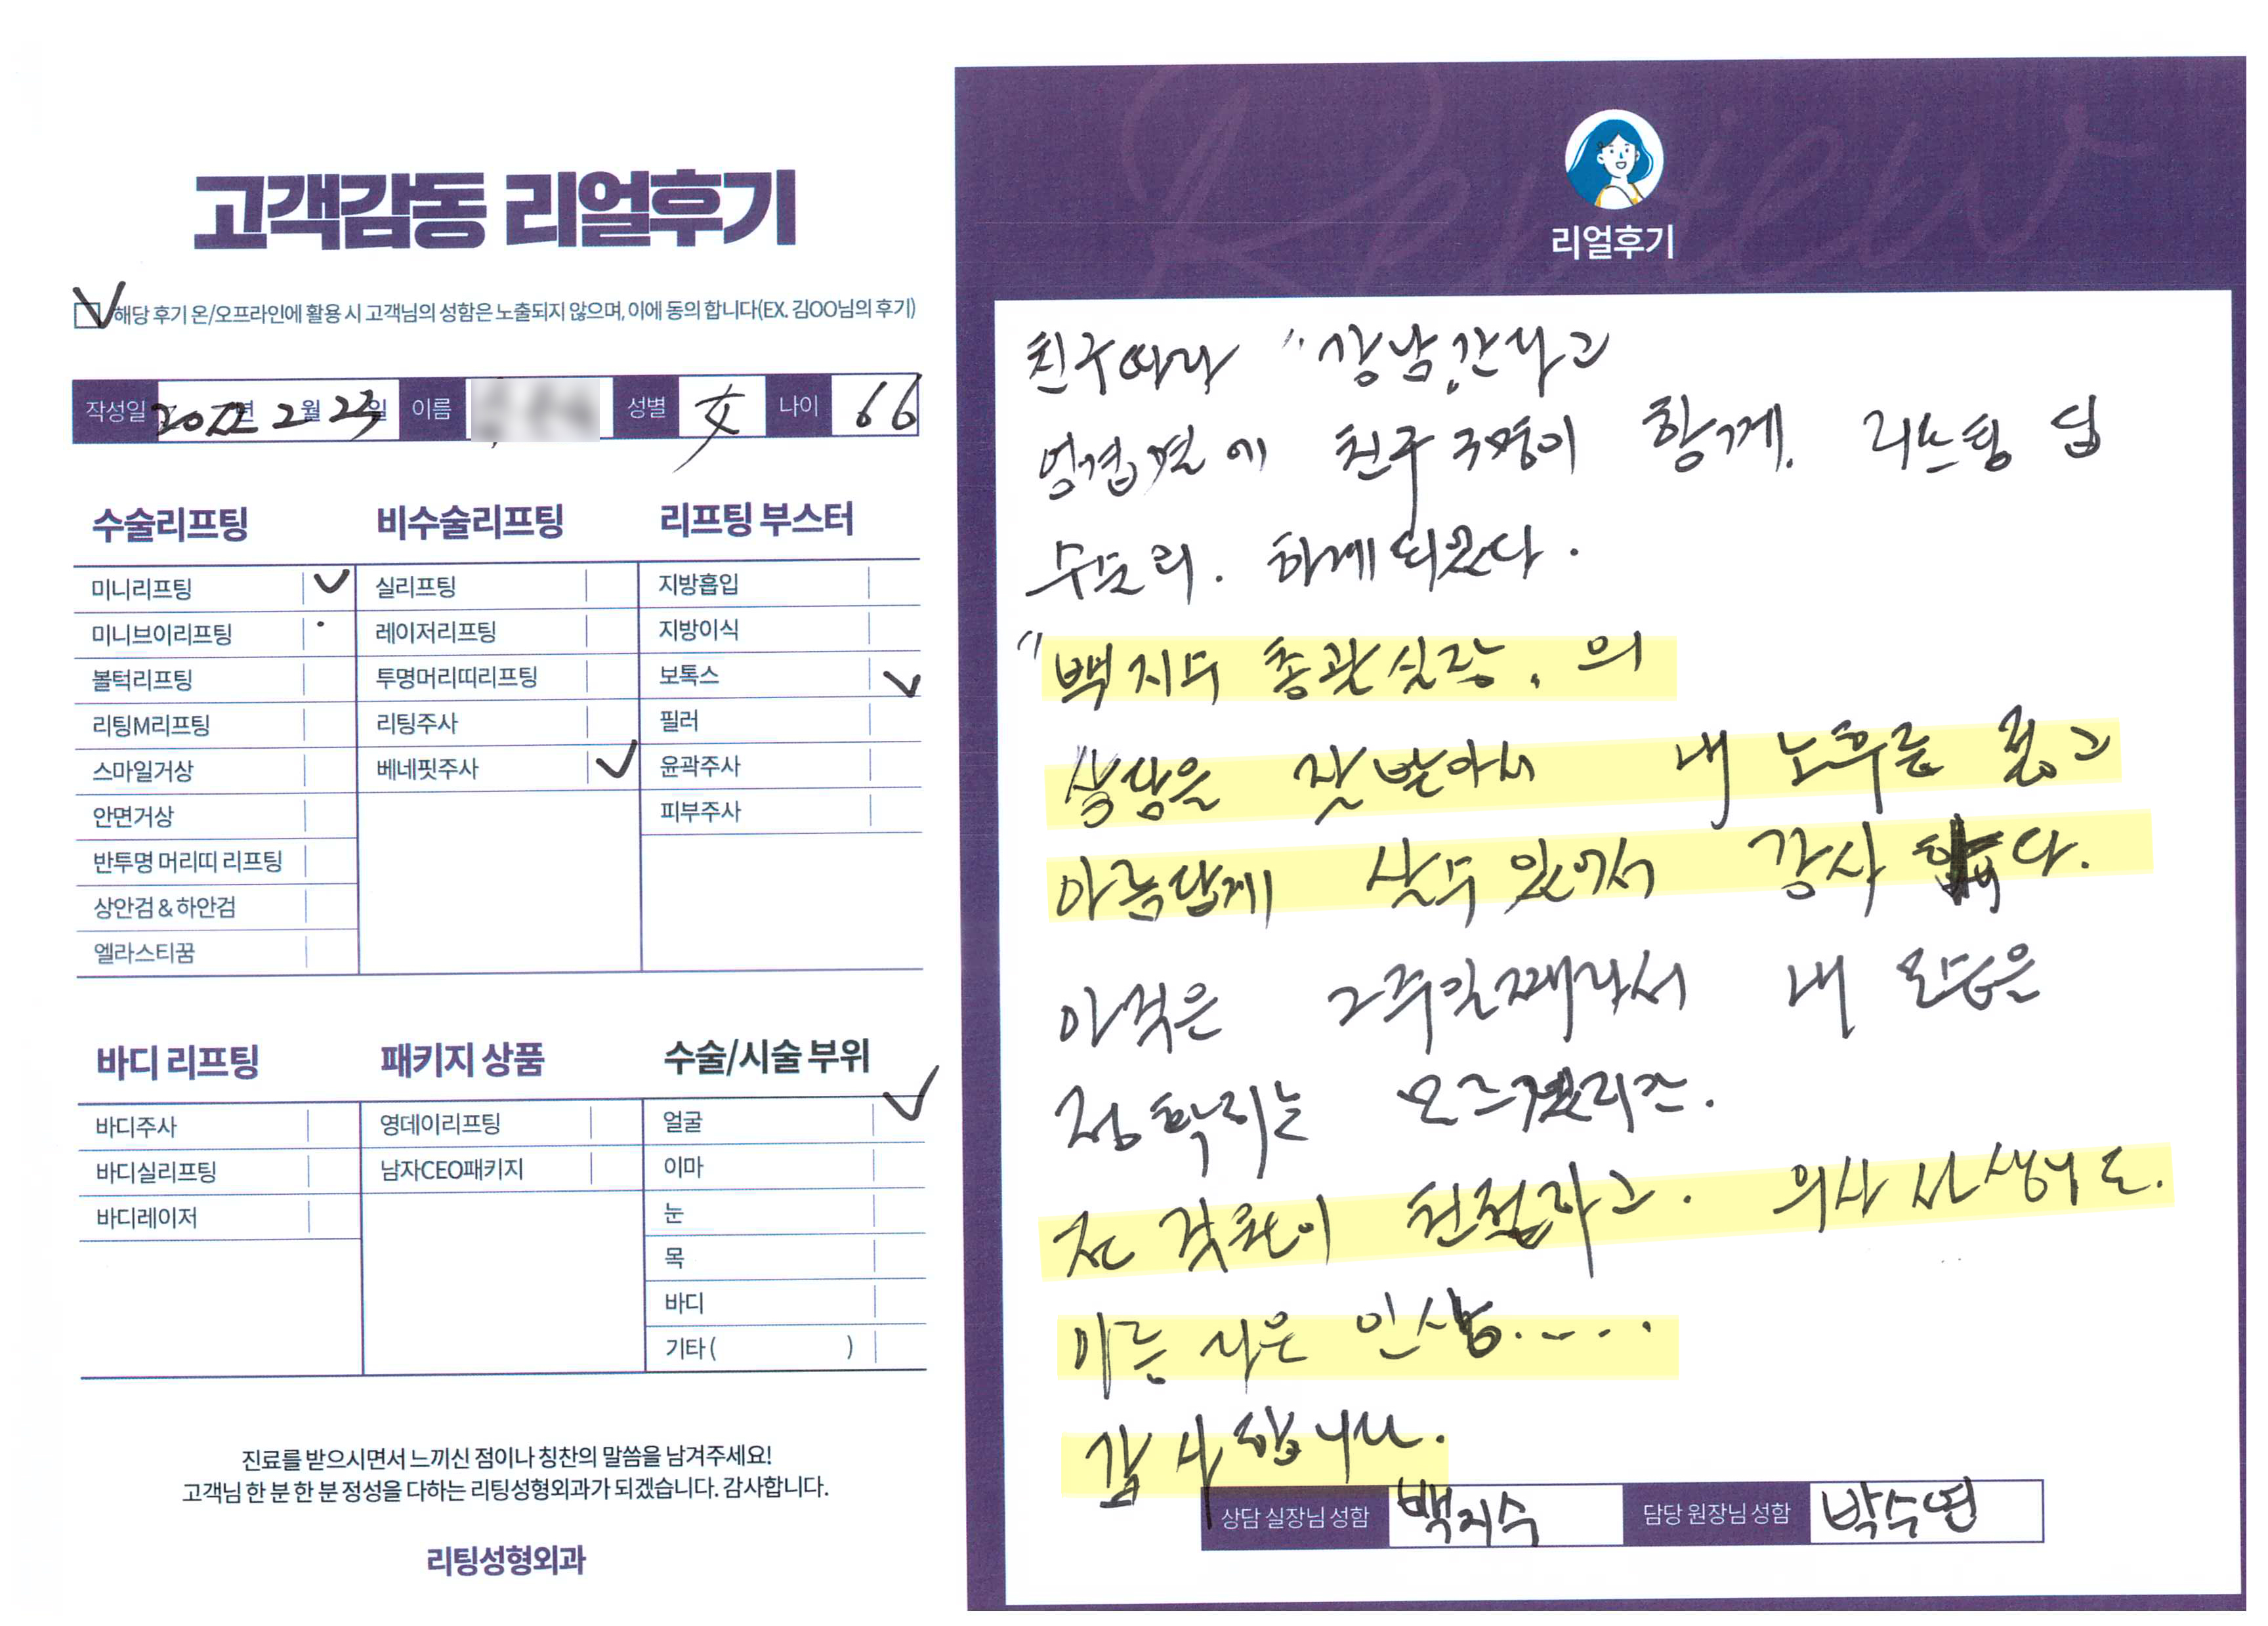 고객감동 리얼후기
해당 후기 온/오프라인에 활용 시 고객님의 성함은 노출되지 않으며, 이에 동의 합니다(EX. 김OO님의 후기)
작성일 2022년 2월 23일 이름 성별 女 나이 66
수술리프팅
미니리프팅
미니브이리프팅
볼턱리프팅
리팅M리프팅
스마일거상
안면거상
반투명 머리띠 리프팅
상안검 & 하안검
엘라스티꿈
비수술리프팅
실리프팅
레이저리프팅
투명머리띠리프팅
리팅주사
베네핏주사
리프팅 부스터
지방흡입
지방이식
보톡스
필러
윤곽주사
피부주사
바디 리프팅
바디주사
바디실리프팅
바디레이저
패키지 상품
영데이리프팅
남자CEO패키지
수술/시술 부위
얼굴
이마
눈
목
바디
기타 ( )
진료를 받으시면서 느끼신 점이나 칭찬의 말씀을 남겨주세요!
고객님 한 분 한 분 정성을 다하는 리팅성형외과가 되겠습니다. 감사합니다.
리팅성형외과
Review
리얼후기
친구따라 "강남간다고
엉겁결에 친구 함께.
하게되었다.
"백지수 총괄실장, 의
상담을 잘 받아서 내 노후를 곱고
아름답게 살수 있어서 감사 다.
아직은 2주일째라서 내 모습은
정확히는 모르겠지만.
전 직원이 친절하고. 의사 선생님도.
인상.....
감사합니다.
상담 실장님 성함 백지수 담당 원장님 성함 박수연